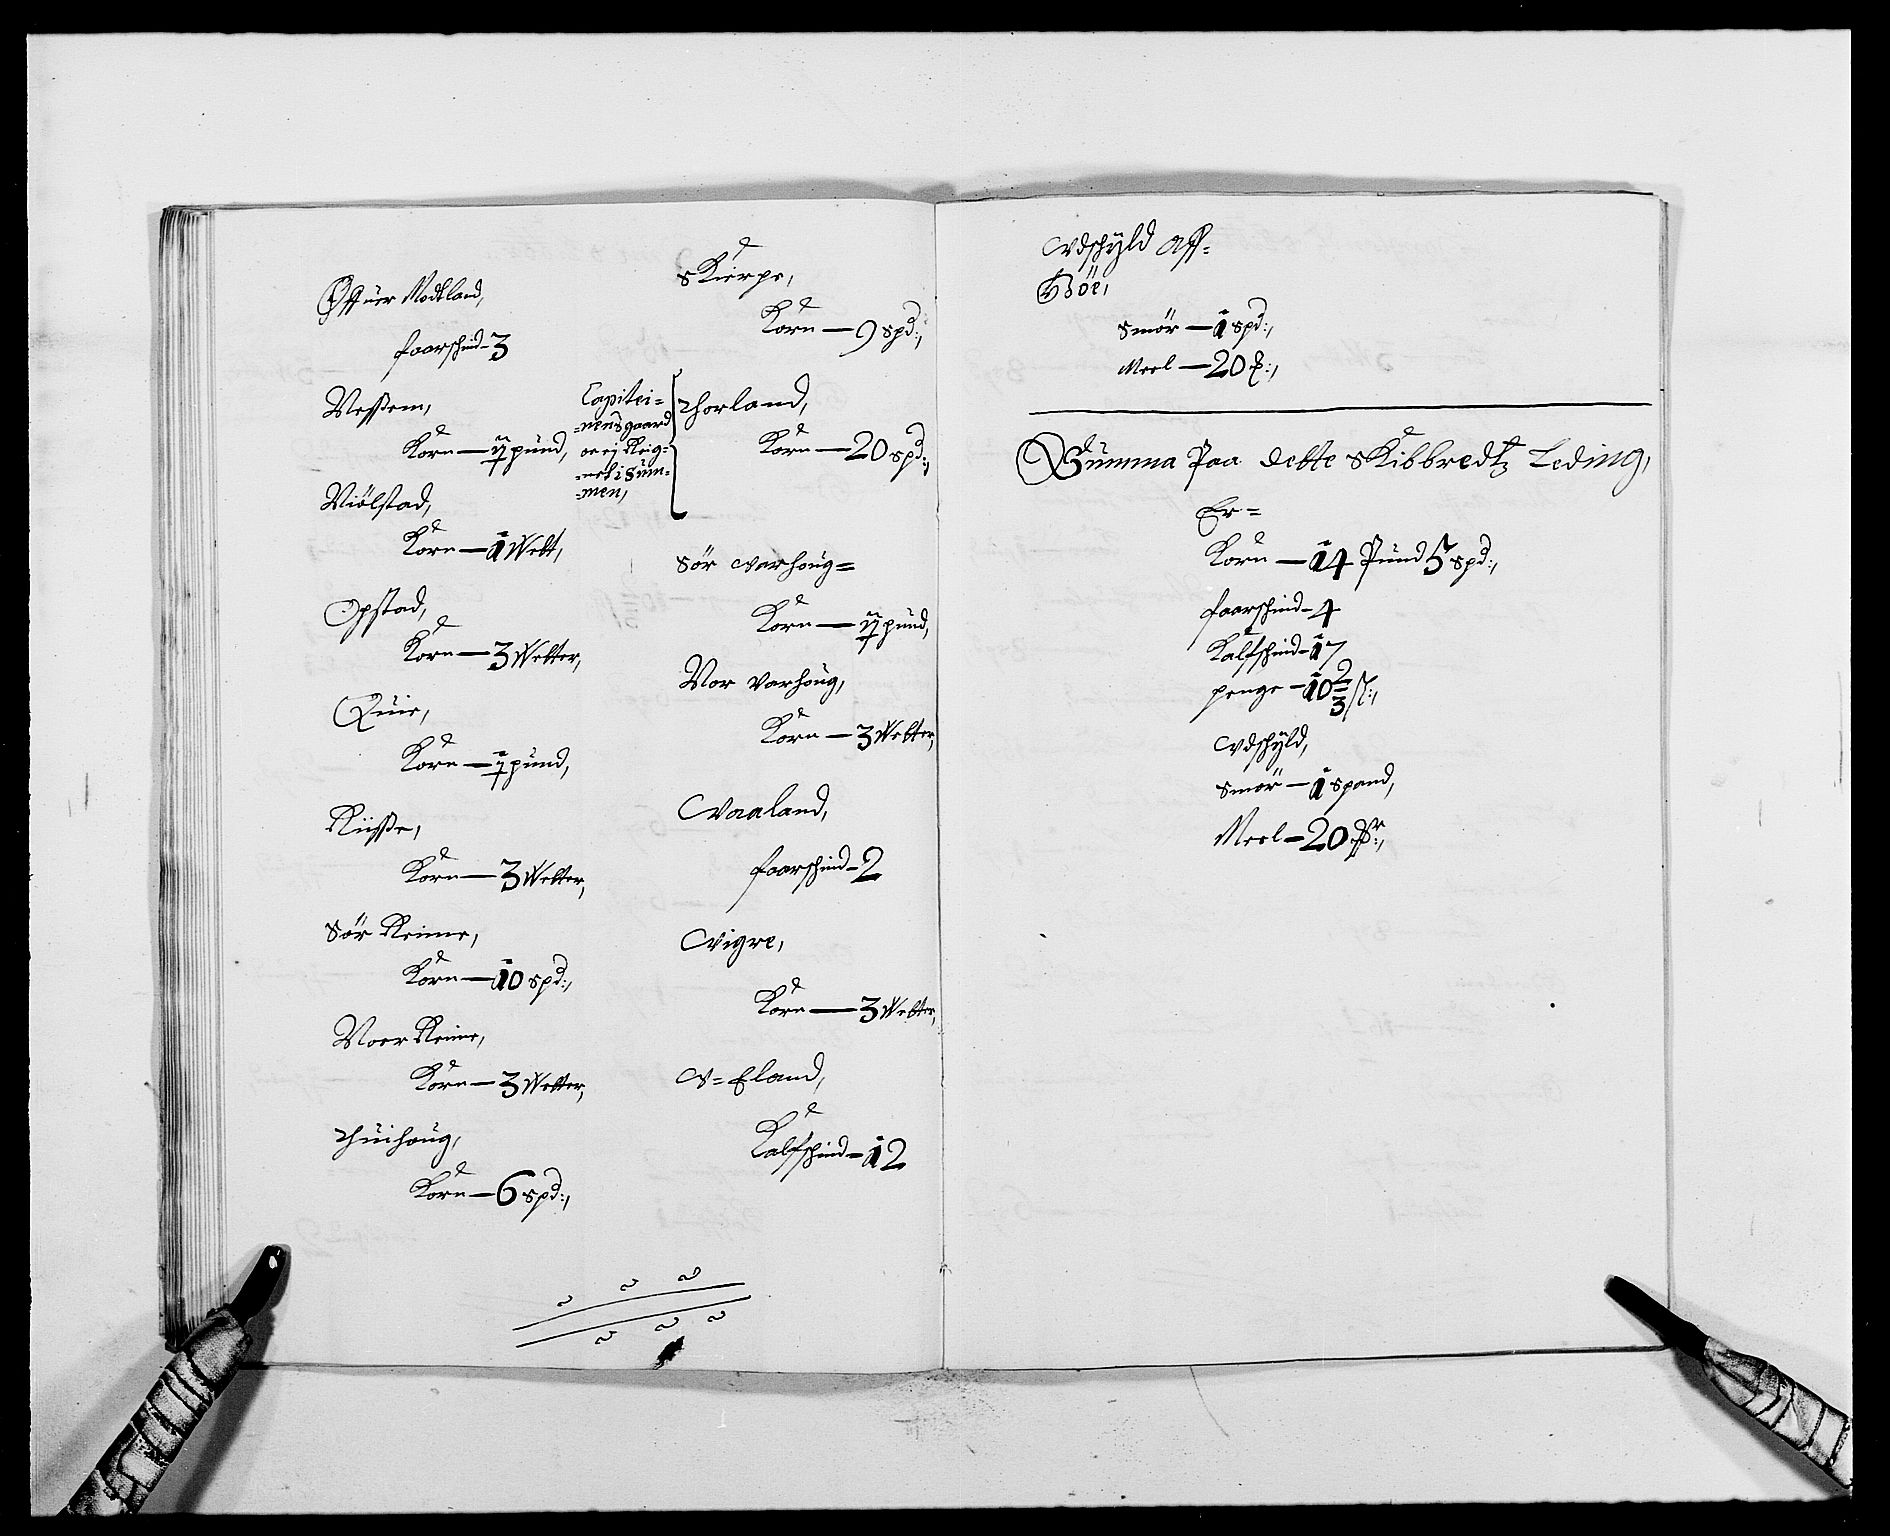 Offuer Modland,
faarschind - 3
Nessem,
Korn — ½ pund,
Niölstad,
Korn — 1 Wett,
Opstad,
Korn — 3 Wetter,
Quie,
Korn — ½ pund,
Risse,
Korn — 3 Wetter,
Sör Reime,
Korn — 10 spd:,
Noer Reime,
Korn — 3 Wetter,
Thuihoug,
Korn — 6 spd:,
Skierpe,
Korn — 9 spd:,
Capitei=
=nensgaard
er ej Reig=
=net i Sum=
=men,
Thorland,
Korn — 20 spd:,
Sör Varhoug =
Korn — ½ pund,
Nor Varhoug,
Korn — 3 Wetter,
Vaaland,
faarschind - 2
Vigre,
Korn — 3 Wetter,
V = Eland,
Kalfschind - 12
Vdschyld Aff =
Böe,
Smör — 1 spd:,
Meel — 20 ℔:,
Summa Paa dette Skibbredtz Leding,
Er =
Korn — 14 Pund 5 spd:,
faarschind - 4
Kalfschind - 17
penge - 10 2/3 ß:,
Vdschyld,
Smör — 1 spand,
Meel - 20